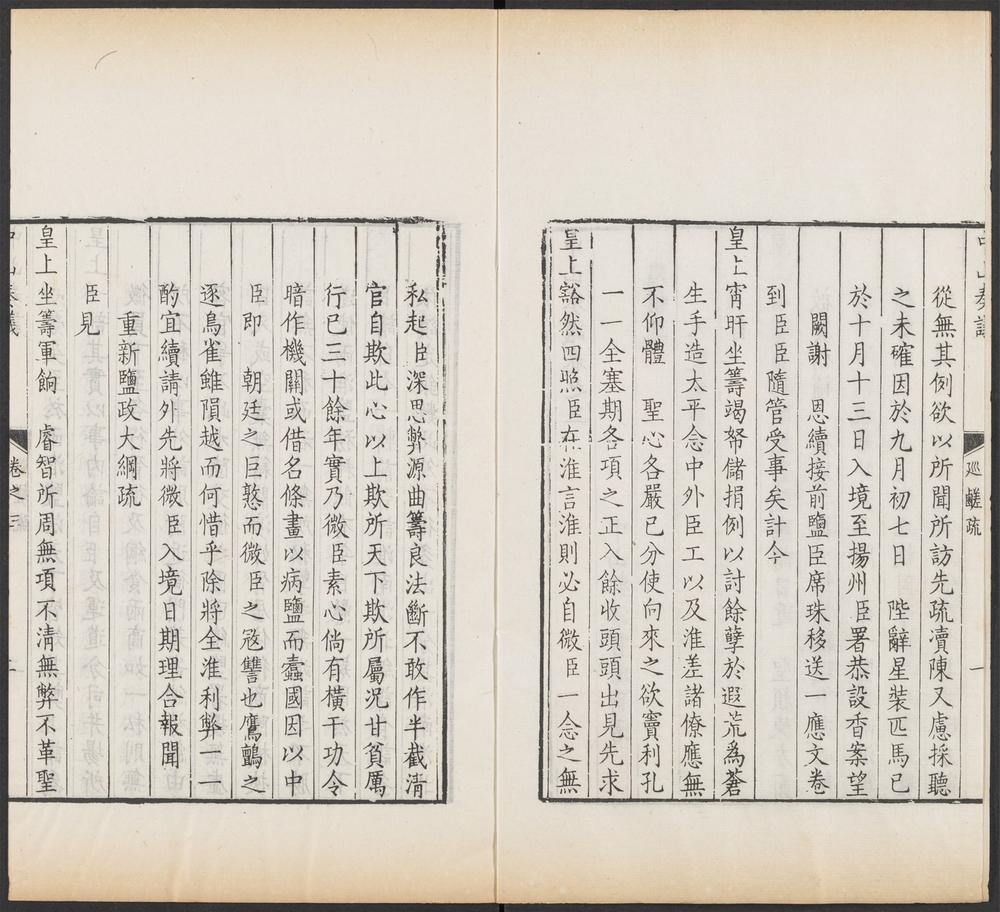 從無其例欲以所聞所訪先疏瀆陳又慮採聽
之未確因於九月初七日　陛辭星裝匹馬已
於十月十三日入境至揚州臣署恭設香案望
闕謝　恩續接前鹽臣席珠移送一應文卷
到臣臣隨管受事矣計今
皇上宵旰坐籌竭帑儲捐例以討餘孽於遐荒為蒼
生手造太平念中外臣工以及淮差諸僚應無
不仰體　聖心各嚴已分使向來之欲竇利孔
一一全塞期各項之正入餘收頭頭出見先求
皇上豁然四照臣在淮言淮則必自微臣一念之無
私起臣深思弊源曲籌良法斷不敢作半截清
官自欺此心以上欺所天下欺所屬況甘貧厲
行已三十餘年實乃微臣素心倘有橫干功令
暗作機關或借名條畫以病鹽而蠹國因以中
臣即　朝廷之巨憝而微臣之寇讐也鷹鸇之
逐鳥雀雖隕越而何惜乎除將全淮利弊一一
酌宜續請外先將微臣入境日期理合報聞
重新鹽政大綱疏
臣見
皇上坐籌軍餉　睿智所周無項不清無弊不革聖
巡鹺疏
一
卷之三